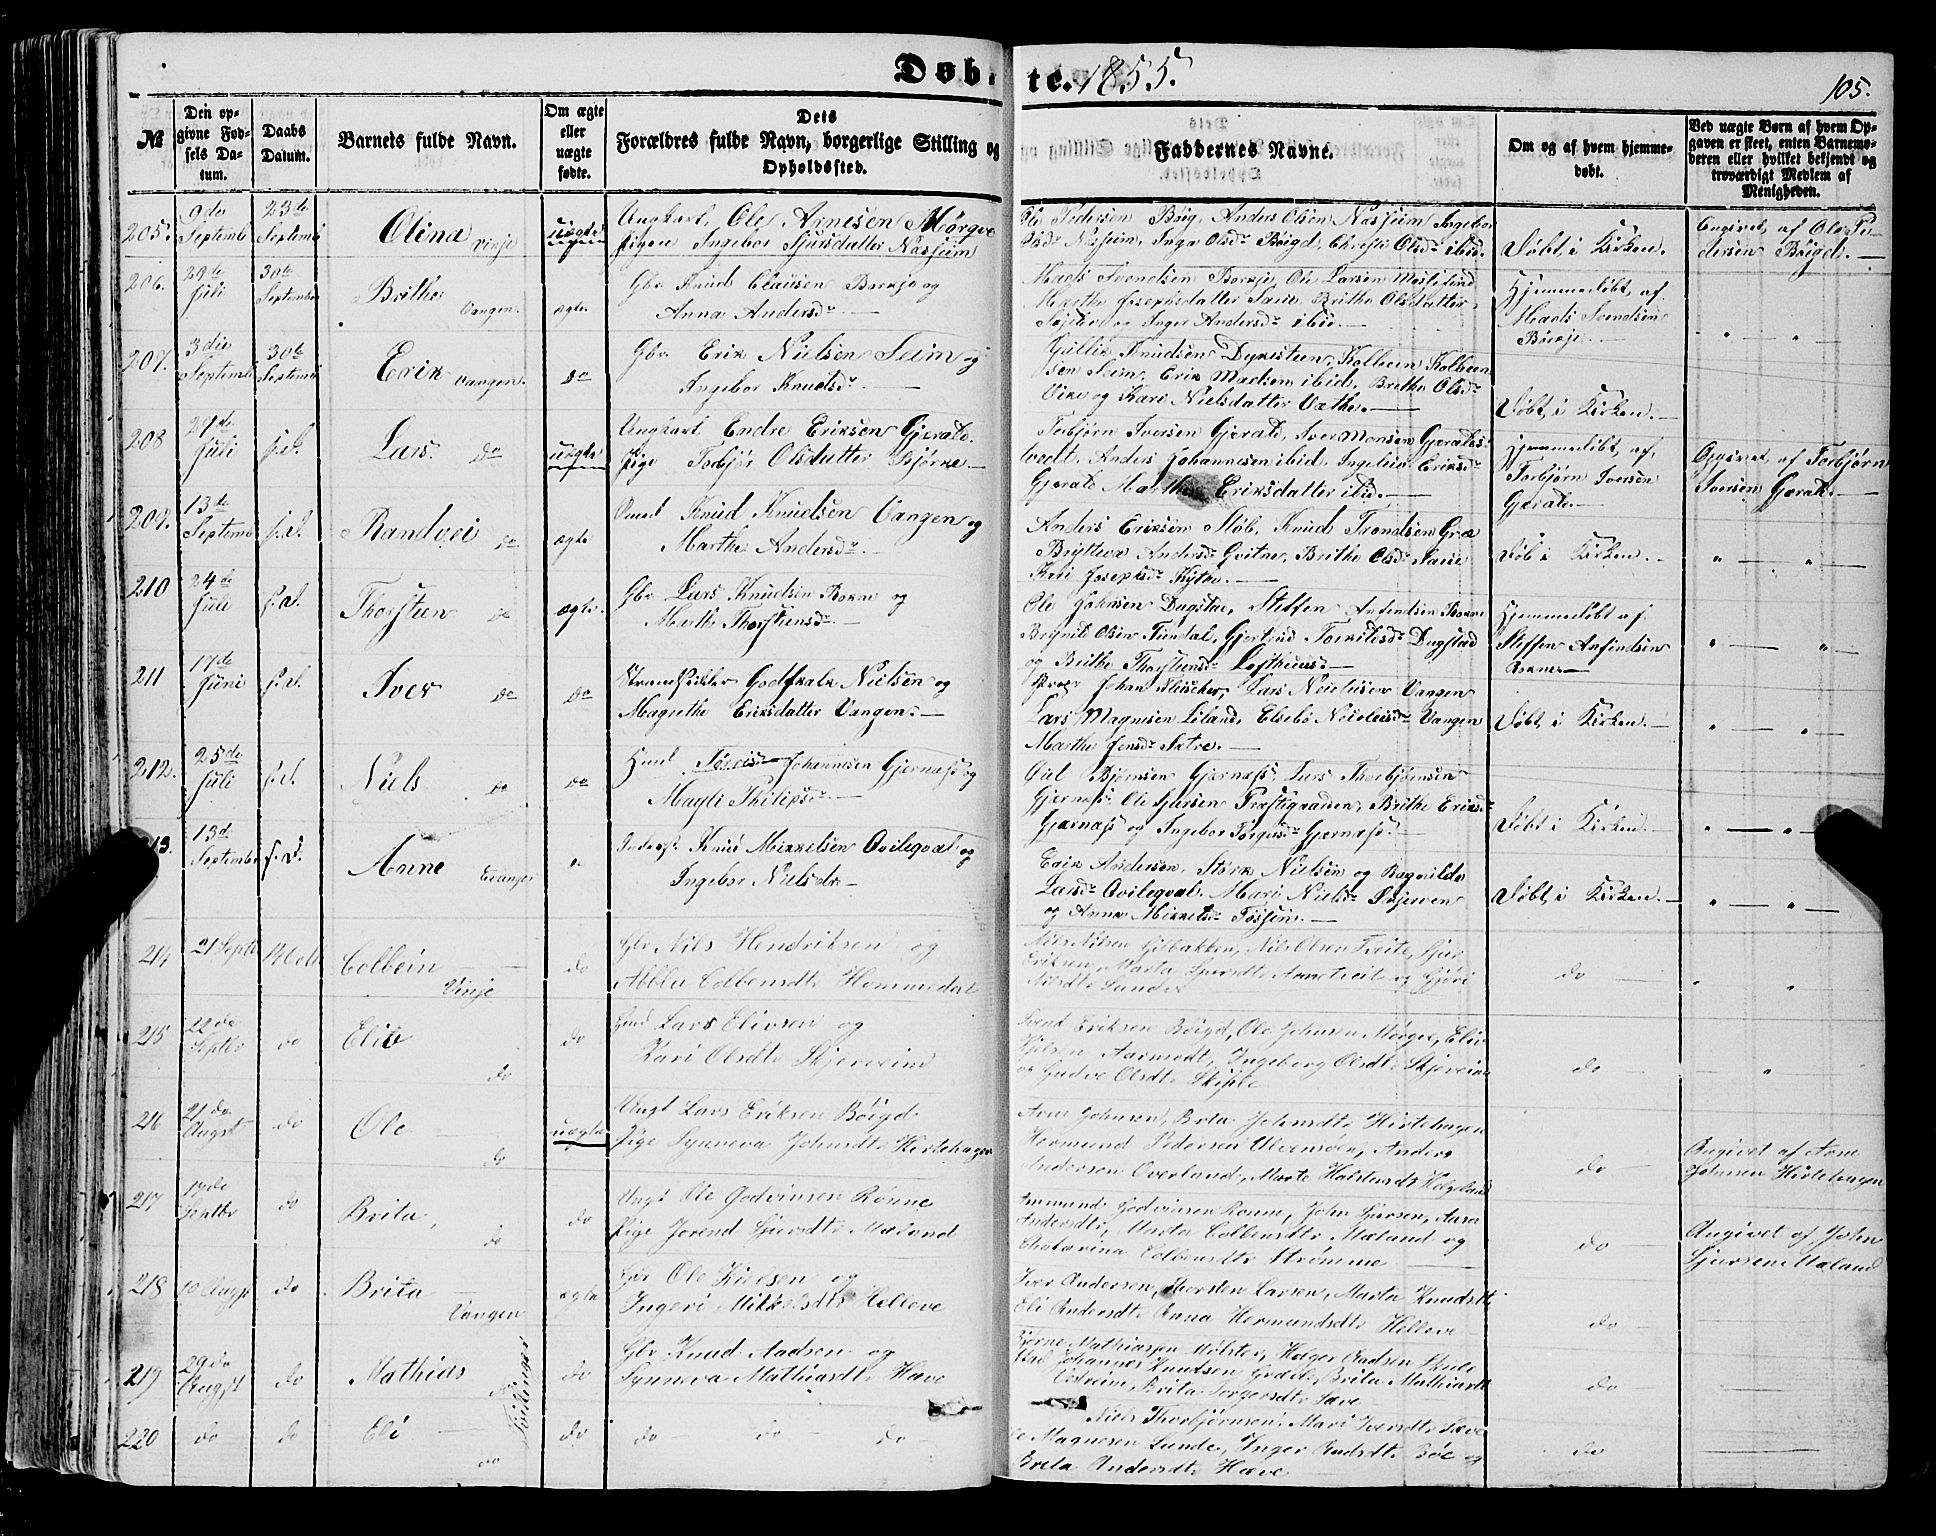 Døbte. 1855.
105.
№
Den opgivne Fødsels Datum.
Daabs Datum.
Barnets fulde Navn.
Om ægte eller uægte fødte.
Dets Forældres fulde Navn, borgerlige Stilling og Opholdssted.
Faddernes Navne.
Om og af hvem hjemmedøbt.
Ved uægte Børn af hvem Opgaven er skeet, enten Barnemoderen eller hvilket bekjendt og troværdigt Medlem af Menigheden.
205. 9de Septemb 23de Septemb Olina Vinje uægte
Ungkarl Ole Arnesen Mørgve
Pigen Ingebor Sjursdatter Næsheim
Ole Pedersen Bøig, Anders Olsen Næsheim Ingebor
Olsdr Næsheim, Inga Olsdr Bøigd, Christi Olsdr ibid.
Døbt i Kirken.
Angivet af Ole Pedersen Bøigd.
206. 29de Juli 30te September Brithe Vangen. ægte.
Gbr Knud Clausen og
Anna Andersdr
Mads Svendsen Ole Larsen
Marthe Josephsdatter Brithe Olsdatter
og Inger Andersdr ibid.
Hjemmedøbt af
Mads Svendsen
207. 3die Septemb 30te Septemb Erik Vangen. do
Gbr Erik Nielsen Seim og
Ingebor Knudsdr
Gullik Knudsen Dykesteen, Kolbeen Kolbeensen Seim, Erik Madsen ibid, Brithe Olsdr
og Kari Nielsdatter Væthe.
Døbt i Kirken.
208 29de Juli s.d. Lars do uægte
Ungkarl Endre Eriksen Gjerald.
Pige Torbjør Olsdatter Bjørke
Torbjørn Iversen Gjerald, Iver Monsen Gjeraldstvedt, Anders Johannesen ibid. Eriksdr
Gjerald Marthe Eriksdatter ibid.
Hjemmedøbt af
Torbjørn Iversen
Gjerald.
Opgivet af Torbjørn
Iversen Gjerald.
209. 13de Septemb s.d. Randvei do ægte
Knud Knudsen Vangen og
Marthe Andersdr
Anders Eriksen Støb, Knud Trondsen Græe
Andersdr Gvitne, Brithe Olsdr
Kari Josephsdr Kythe.
Døb i Kirken.
210 24de Juli s.d. Thorstein do ægte.
Gbr Lars Knudsen Rokne og
Marthe Thorsteinsdr
Ole Johnsen Dugstad, Steffen Anfindsen Rokne
Olsen Tundal, Gjertrud Torkildsdr Dugstad
og Brithe Thorsteinsdr Lofthuus.
Hjemmedøbt af
Steffen Anfindsen
Rokne
211 17de Juni s.d. Iver do do
Strandsidder Godskalk Nielsen og
Magrethe Eriksdatter Vangen.
Johan Fleischer, Lars Vangen
Lars Magnusen Liland, Elsebe Vangen
Marthe Jensdr Sætre.
Døbt i Kirken.
212. 25de Juli s.d. Niels do do
Johannesen Gjernæs og
Magli Philipsdr
Bjørnsen Gjernæs, Lars Thorbjørnsen
Gjernæs Ole Sjursen Præstegaarden, Brithe Eriksdr
Gjernæs og Ingebor Gjernæs.
Døbt i Kirken.
13. 13d September s.d. Anne Evanger
Inderst Knud Mikkelsen Qvileqval og
Ingebor Nielsdr
Erik Andersen, Størk Nielsen og Ragnilde
Larsdr Qvileqval, Mari Nielsdr
og Anna Mikkelsdr
Døbt i Kirken.
214 21 Septr Colbein Vinje do
Gbr Nils Hendriksen og
Abblu Colbensdtr Hommedal
Nils Nilsen Gilbakken, Nils Olsen Tveite, Sjur
Eriksen, Marta Sjursdtr og Gjøri
Nilsdtr Lunde
do
215 22de Septbr do Eliv do do
Hmd Lars Elivsen og
Kari Olsdtr Skjerveim
Svend Eriksen Bøigd, Ole Johnsen Mørgve, Eliv
Aarmodt, Ingeborg Olsdtr Skjerveim
og Gudve Olsdtr Skiple
do
216 21de Augst do Ole do uægte
Ungk Lars Eriksen Bøigd
Pige Synneva Johnsdtr Hirtehagen
Arne Johnsen, Brita Johnsdtr Hirtehagen
Hermund Pedersen Ulvensøen, Anders
Andersen Overland, Marte Halstensdtr Helgeland
do
Angivet af Arne
Johnsen Hirtehagen
217 17de Septbr do Brita, do do
Ungk Ole Godvinsen Rønne
Pige Jorend Sjursdtr Mæland
Ammund Godvinsen Rønne, John Sjursen, Aasa
Andersdtr, Marta Colbensdtr Mæland og
Chatarina Colbensdtr Strømme
do
Angivet af John
Sjursen Mæland
218 10 Augst do Brita Vangen ægte
Gbr Ole Nielsen og
Ingeri Mikkelsdtr Helleve
Iver Andersen, Thorsten Larsen, Marta Knudsdtr
Eli Andersdtr Anna Hermundsdtr Helleve
do
219 29de Augst do Mathias do Tvillinger do
Gbr Knud Aadsen og
Synneva Mathiasdtr Hæve
Bjørne Mathiassen Mølster, Holger Aadsen Skule-
stad Johannes Knudsen Græe, Brita Mathiasdtr
Vestreim, Brita Torgersdtr Sæve
do
220 do do Eli do do
do do do
Niels Thorbjørnsen, Mari Iversdtr Sæve
Magnesen Lunde, Inger Aadsdtr Bøe og
Brita Andersdtr Hæve
do